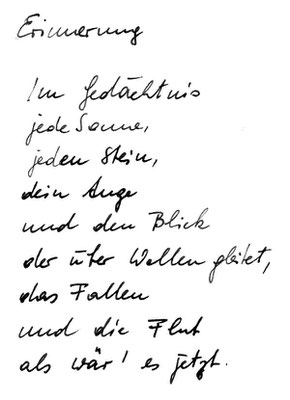 Erinnerung
Im Gedächtnis
jede Sonne,
jeden Stein,
dein Auge
und den Blick
der über Wellen gleitet,
das Fallen
und die Flut
als wär' es jetzt.